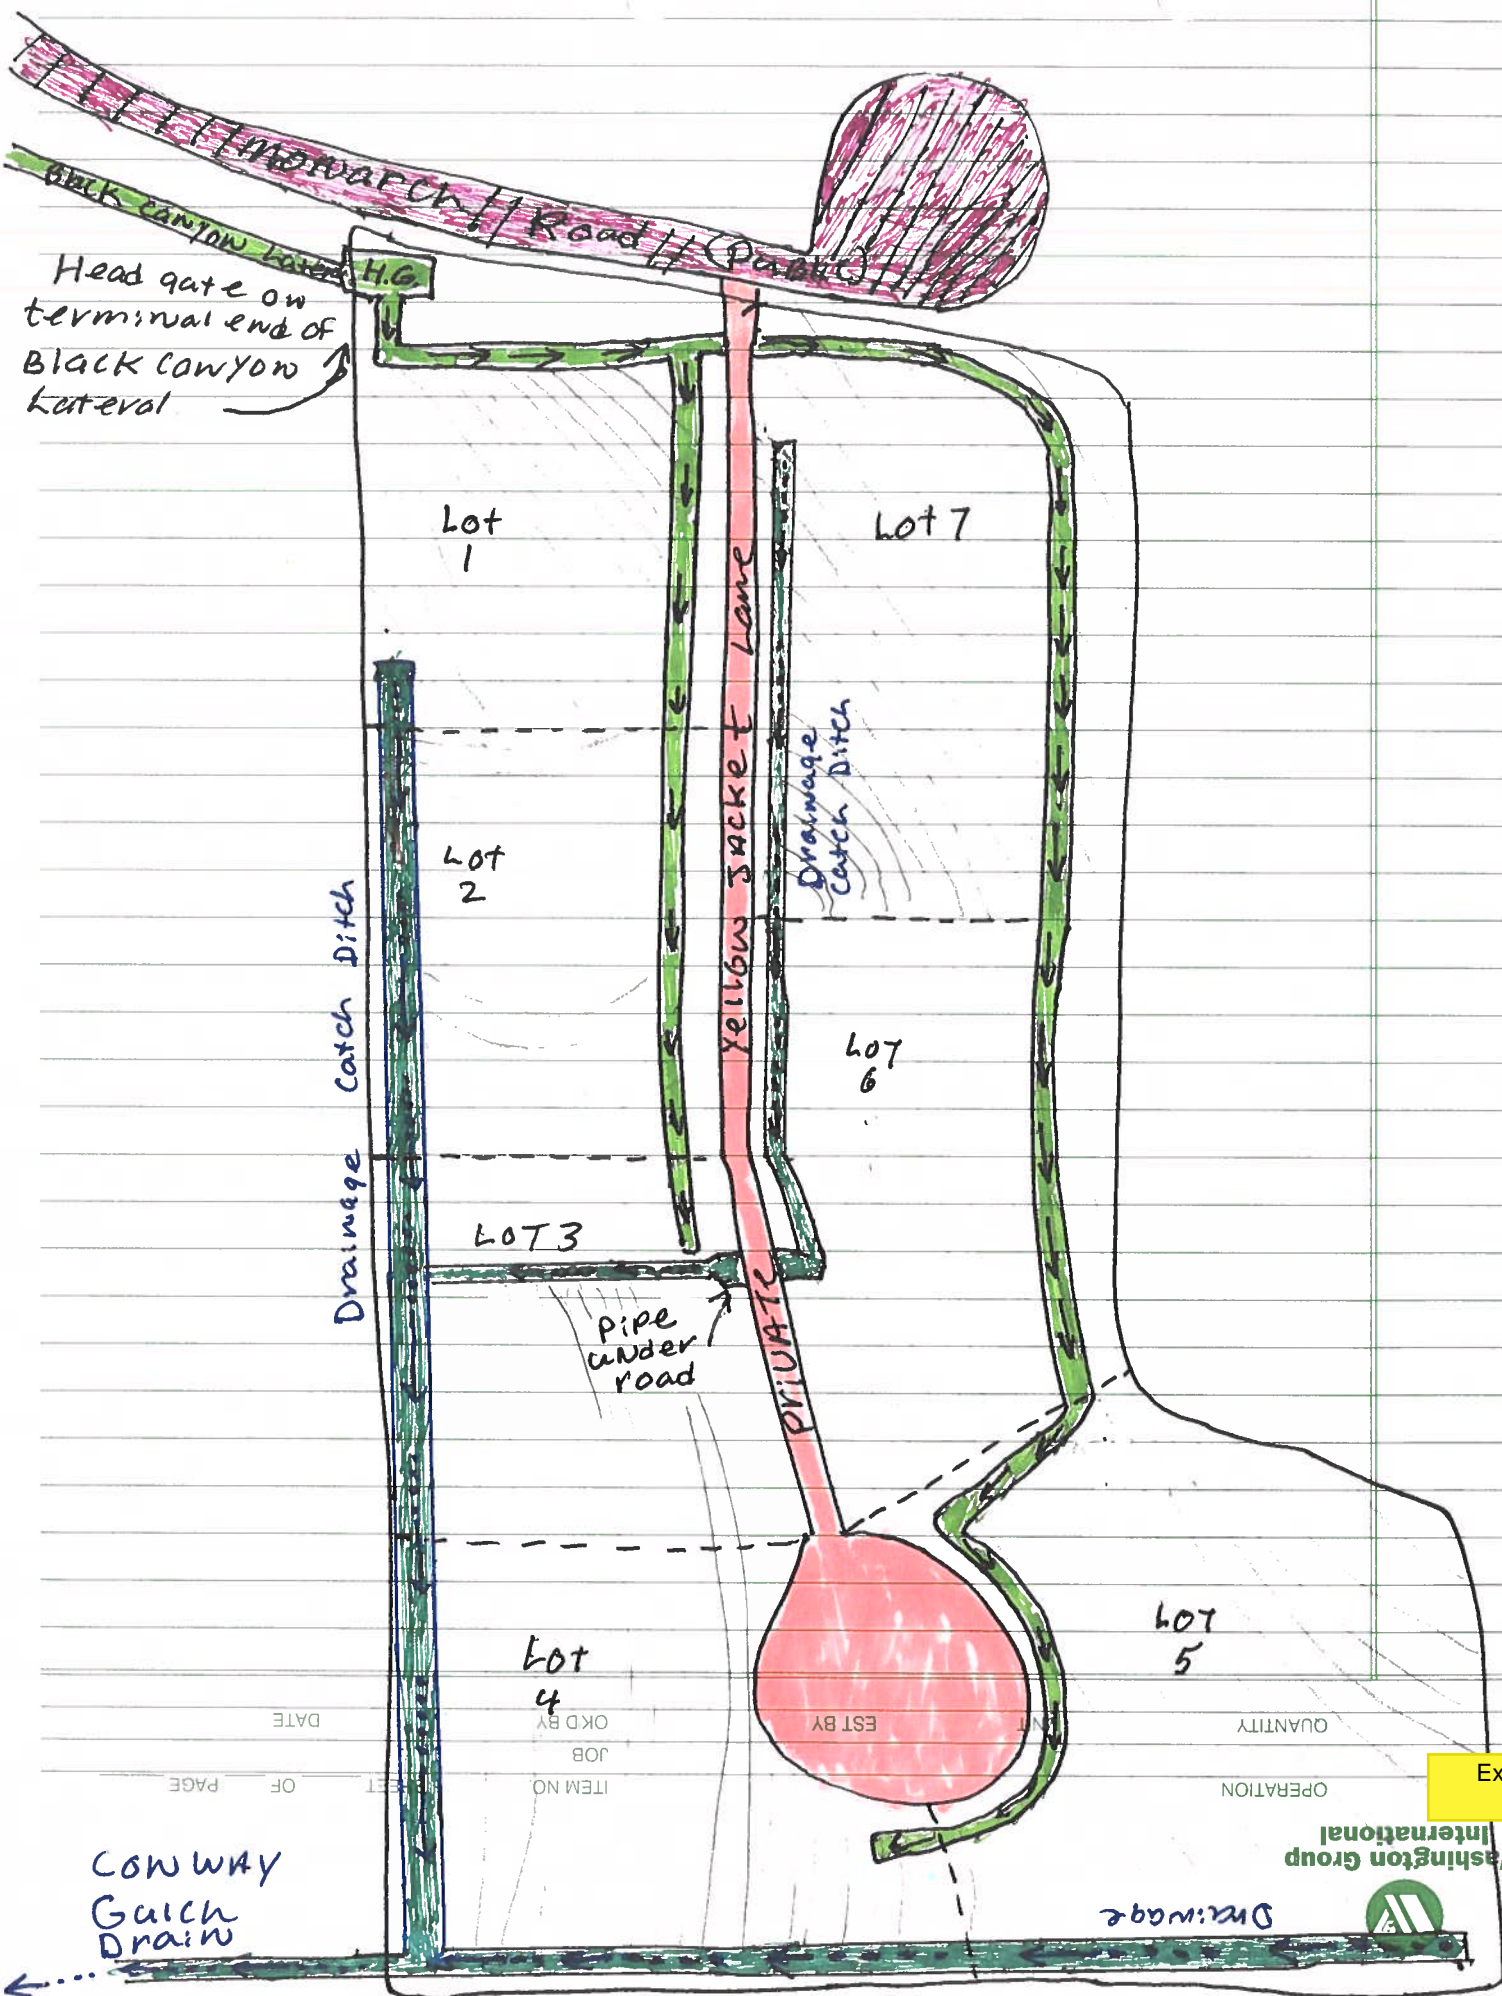 Monarch Road (Public)
Black Canyon Lateral
H.G.
Head gate on
terminal end of
Black Canyon
Lateral
Lot
1
Lot 7
Yellow Jacket Lane
Drainage
Catch Ditch
Lot
2
Drainage Catch Ditch
Lot
6
LOT 3
Pipe
under
road
PRIVATE
Lot
4
LOT
5
DATE
OK'D BY
EST BY
QUANTITY
JOB
ITEM NO
OF
PAGE
OPERATION
Ex
International
ashington Group
Drainage
CONWAY
Gulch
Drain